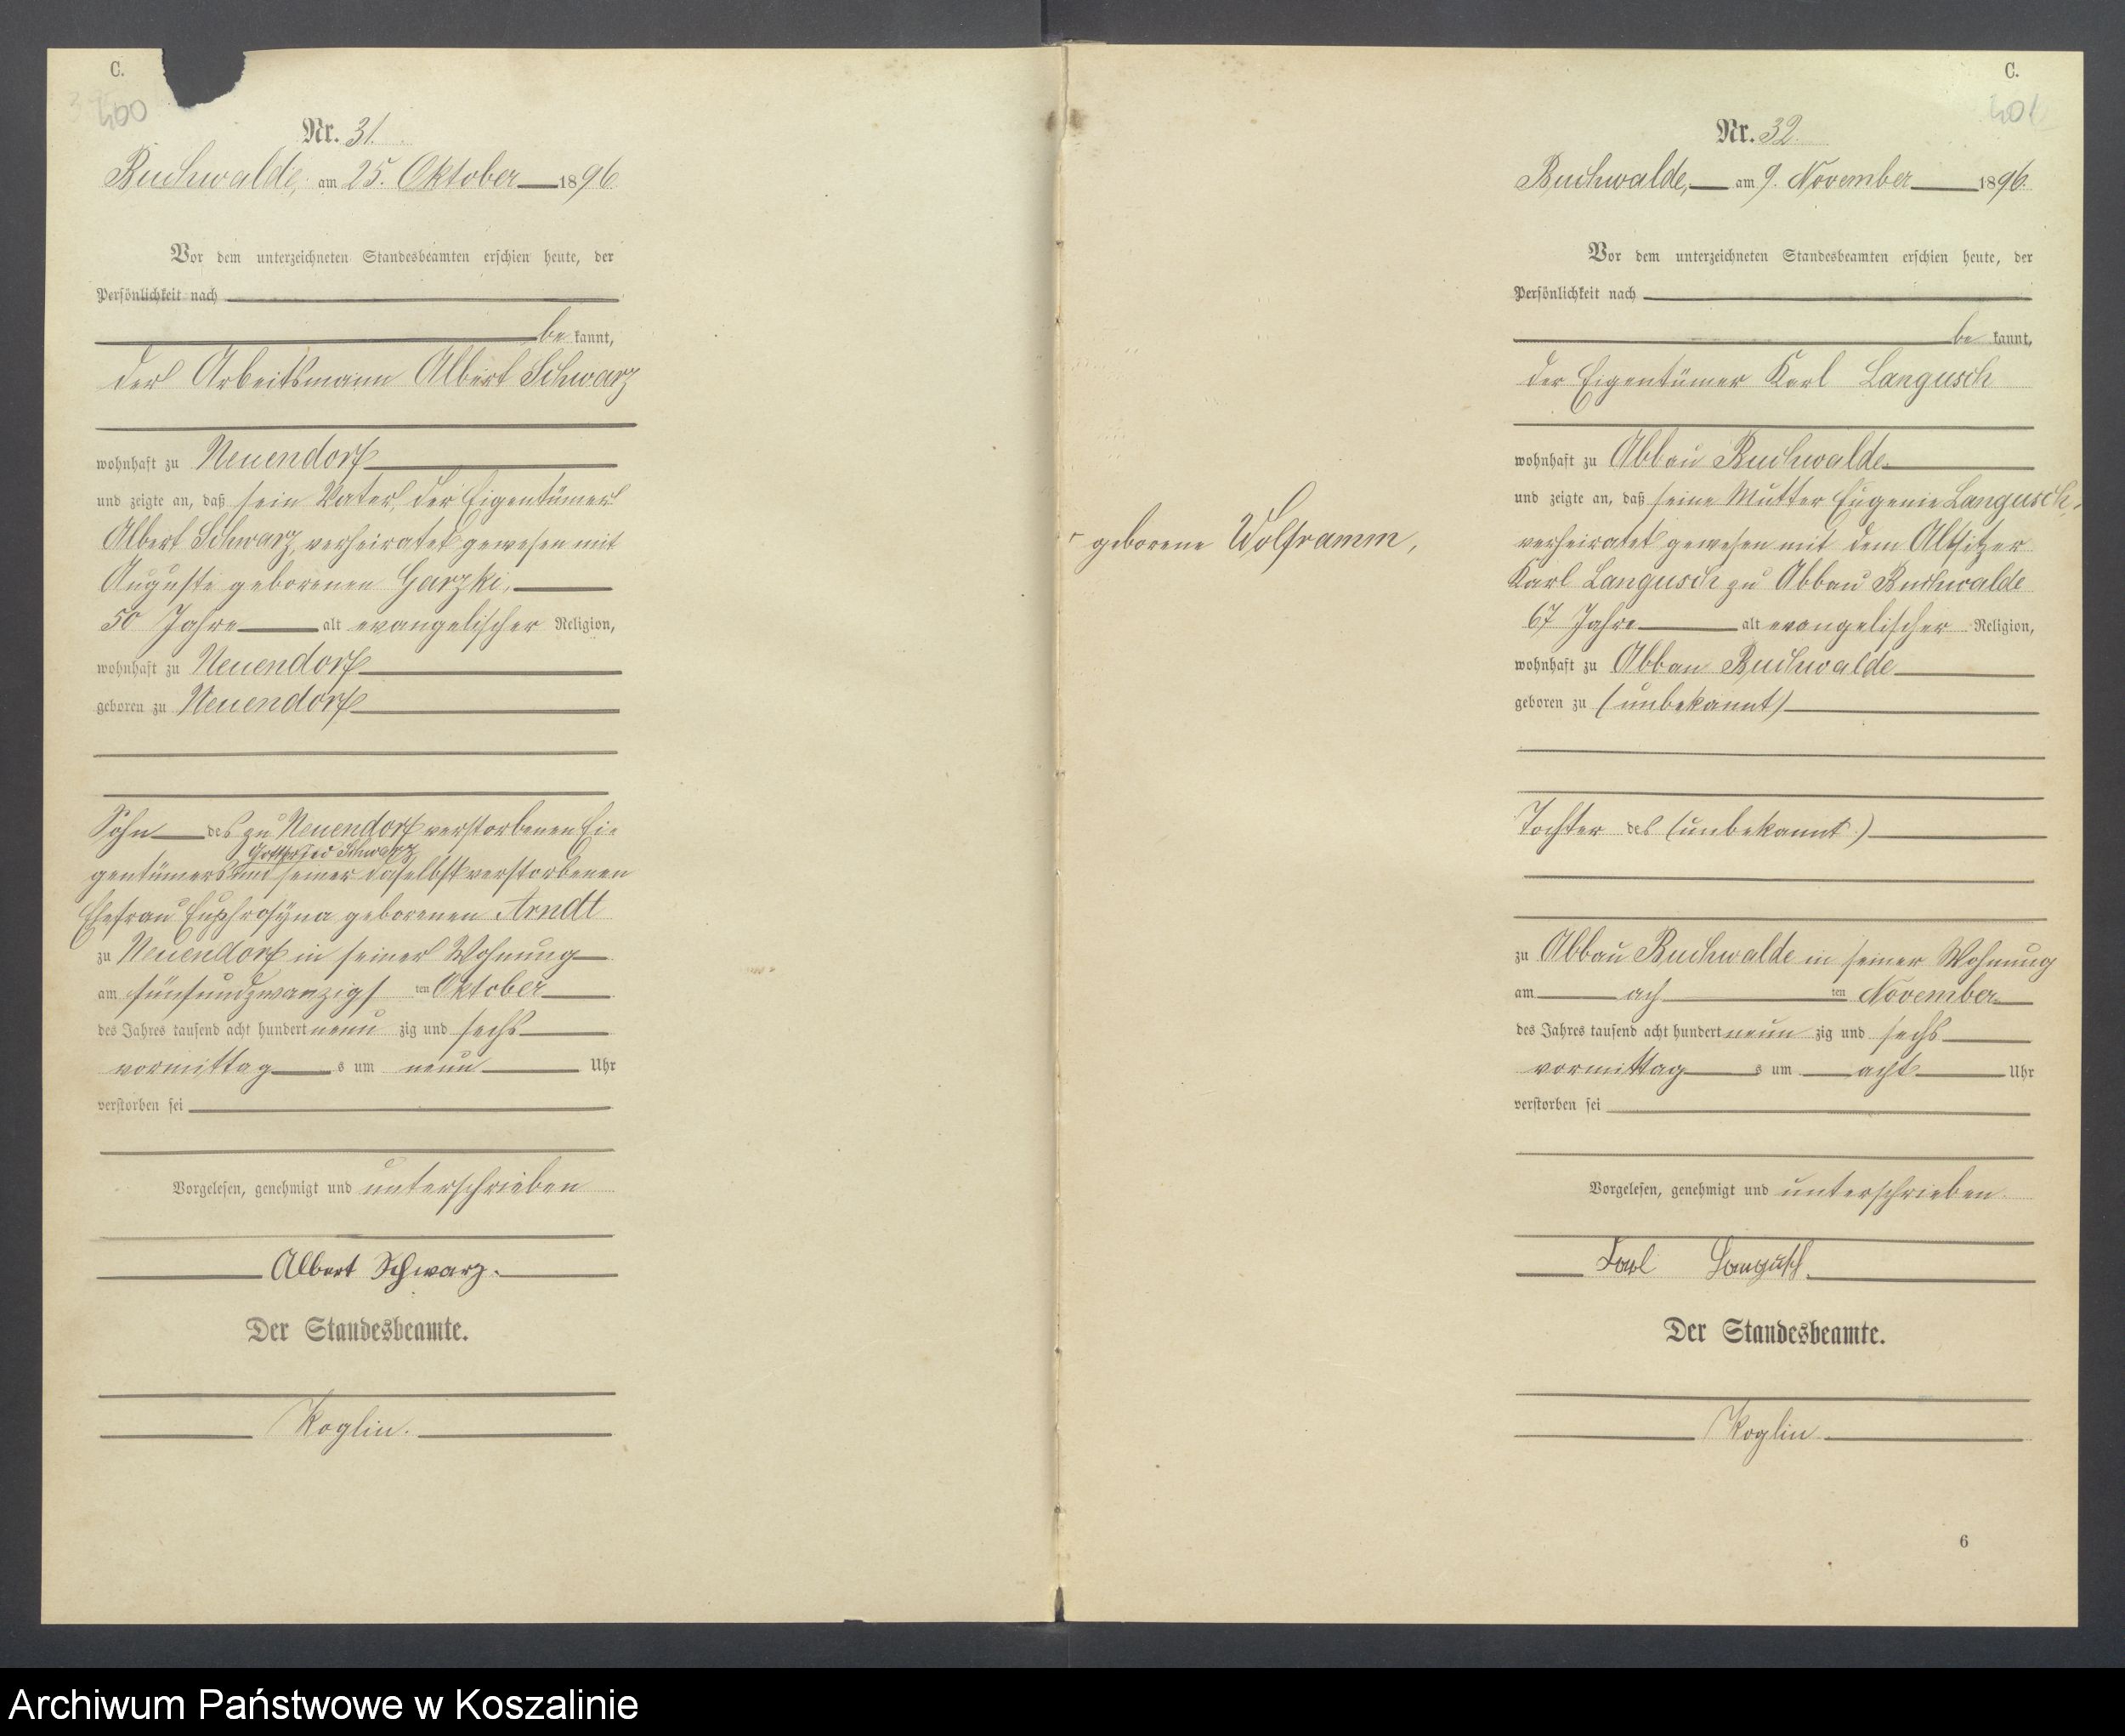 C.
400
Nr. 31.
Buchwalde, am 25. Oktober 1896.
Vor dem unterzeichneten Standesbeamten erschien heute, der
Persönlichkeit nach
be kannt,
der Arbeitsmann Albert Schwarz
wohnhaft zu Neuendorf
und zeigte an, daß sein Vater, der Eigentümer
Albert Schwarz, verheiratet gewesen mit
Auguste geborenen Garzki,
50 Jahre alt evangelischer Religion,
wohnhaft zu Neuendorf
geboren zu Neuendorf
Sohn des zu Neuendorf verstorbenen Ei-
Gottfried Schwarz
gentümers und seiner daselbst verstorbenen
Ehefrau Euphrosyna geborenen Arndt
zu Neuendorf in seiner Wohnung
am fünfundzwanzigs ten Oktober
des Jahres tausend acht hundert neun zig und sechs
vormittag s um neun Uhr
verstorben sei
Vorgelesen, genehmigt und unterschrieben
Albert Schwarz.
Der Standesbeamte.
Koglin.
C.
401
Nr. 32.
Buchwalde, am 9. November 1896.
Vor dem unterzeichneten Standesbeamten erschien heute, der
Persönlichkeit nach
be kannt,
der Eigentümer Karl Langusch
wohnhaft zu Abbau Buchwalde
und zeigte an, daß seine Mutter Eugenie Langusch,
geborene Wolframm,
verheiratet gewesen mit dem Altsitzer
Karl Langusch zu Abbau Buchwalde
67 Jahre alt evangelischer Religion,
wohnhaft zu Abbau Buchwalde
geboren zu (unbekannt)
Tochter des (unbekannt)
zu Abbau Buchwalde in seiner Wohnung
am ach ten November
des Jahres tausend acht hundert neun zig und sechs
vormittag s um acht Uhr
verstorben sei
Vorgelesen, genehmigt und unterschrieben.
Karl Langusch.
Der Standesbeamte.
Koglin
6
Archiwum Państwowe w Koszalinie